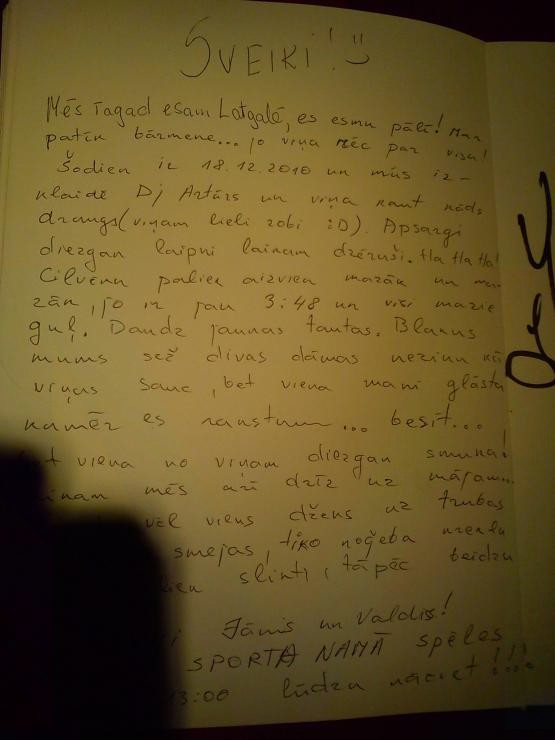 Sveiki! :)
Mēs tagad esam Latgalē, es esmu pālī! Man
patīk bārmene... jo viņa rēc par visu!
Šodien ir 18.12.2010 un mūs iz-
klaidē Dj Artūrs un viņa kaut kāds
draugs (viņam lieli zobi :D). Apsargi
diezgan laipni laikam dzēruši. Ha Ha Ha!
Cilvēku paliek aizvien mazāk un ma-
zāk, jo ir jau 3:48 un visi mazie
guļ. Daudz jaunas tautas. Blakus
mums sēž divas dāmas nezinu kā
viņas sauc, bet viena mani glāsta
kamēr es rakstu... besīt...
bet viena no viņām diezgan smuka!
mēs arī drīz uz mājām...
vēl viens džeks uz trubas
smejas, tiko nogēba
slinki, tāpēc beidzu
Jānis un Valdis!
SPORTA NAMĀ spēles
13:00 lūdzu nāciet!!!...